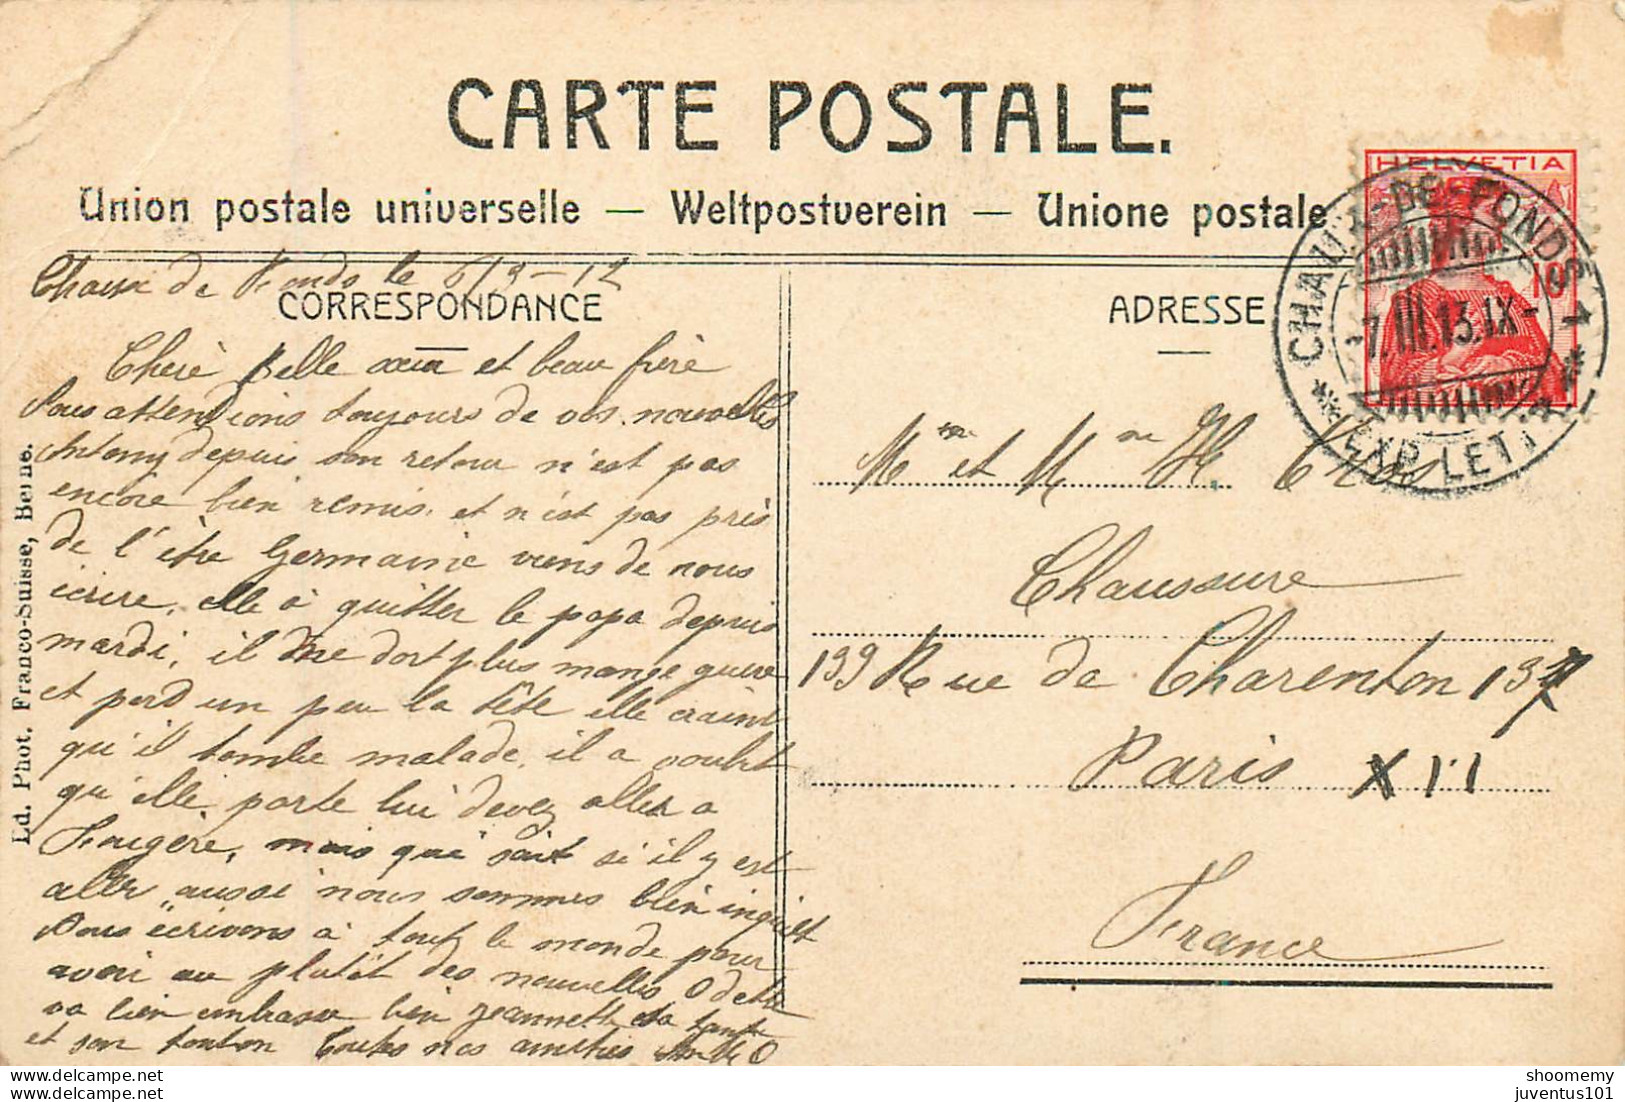 CARTE POSTALE.
Union postale universelle — Weltpostverein — Unione postale
HELVETIA
10
CHAUX-DE-FONDS 1
7.III.13.IX-
EXP. LETT.
Chaux de Fonds le 6/3-12
CORRESPONDANCE
Chère Belle sœur et beau frère
Nous attendions toujours de vos nouvelles
Antony depuis son retour n'est pas
encore bien remis. et n'est pas près
de l'être Germaine viens de nous
écrire, elle à quitter le papa depuis
mardi, il ne dort plus mange guère
et perd un peu la tête elle craint
qu'il tombe malade, il a voulut
qu'elle parte lui devez aller a
Fougère, mais qui sait si il y est
aller aussi nous sommes bien inquiet
Nous écrivons à tout le monde pour
avoir au plutôt des nouvelles Odette
va bien embrasser bien Jeannette sa tante
et son tonton Toutes nos amitiés
ADRESSE
Mr et Mme H. Cros
Chaussure
139 Rue de Charenton 137
Paris XII
France
Ed. Phot. Franco-Suisse, Berne.
shoomemy
juventus101